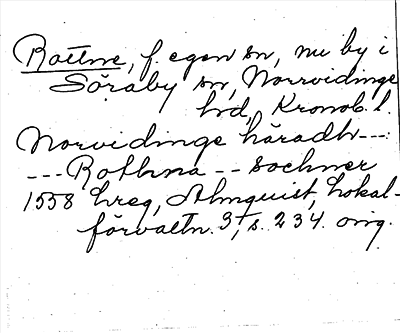 Rottne, f. egen sn, nu by i
Söraby sn, Norrvidinge
hd, Kronob. l.
Norvidinge häradh ---:
--- Rothna -- sochner
1558 hreg, Almquist, Lokal-
förvaltn. 3, s. 234. orig.